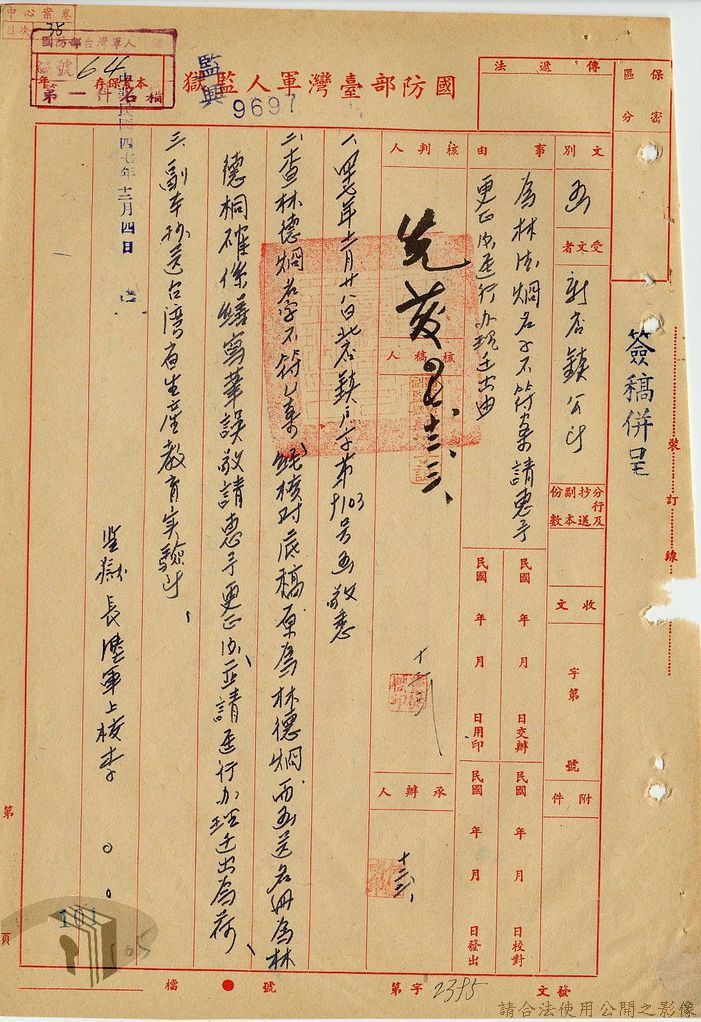 國防部臺灣軍人監獄
監興
9697
64
傳遞法
保密區分
簽稿併呈
裝訂線
文別
函
受文者
新店鎮公所
分行及抄送副本份數
收文
字第
號
附件
事由
為林德烟名字不符案請惠予
更正並逕行办理迁出由
民國 年 月 日交辦
民國 年 月 日校對
民國 年 月 日用印
民國 年 月 日發出
核判人
先發
核稿人
承辦人
一、四七年十一月廿八日北店鎮戶字第9103号函敬悉
二、查林德烟名字不符一案經核对底稿原為林德烟而函送名冊為林
德桐確係繕寫筆誤敬請惠予更正並請逕行办理迁出為荷、
三、副本抄送台湾省生產教育實驗所、
監獄長陸軍上校李○○
十二月四日
第
頁
101
105
發文
字第
2395
號
檔
請合法使用公開之影像